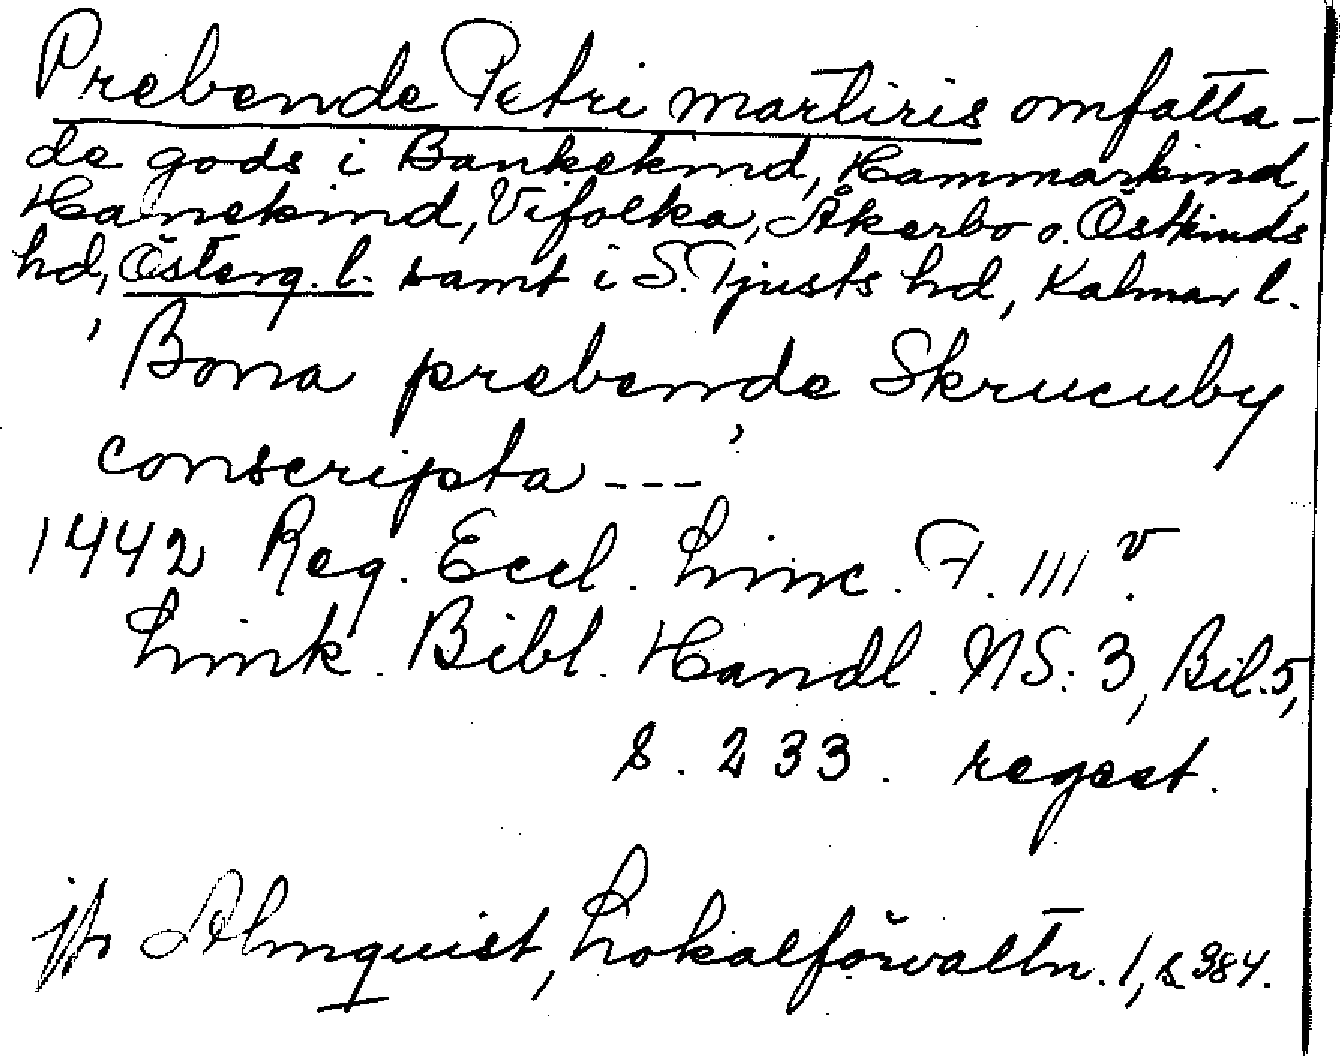 Prebende Petri martiris omfatta-
de gods i Bankekind, Hammarkind,
Hanekind, Vifolka, Åkerbo o. Östkinds
hd, Österg. l. samt i S. Tjusts hd, Kalmar l.
'Bona prebende Skrucuby
conscripta ---'
1442 Reg. Eccl. Linc. F. 111 v.
Link. Bibl. Handl. NS: 3, Bil. 5,
s. 233. regest.
jfr Almquist, Lokalförvaltn. 1, s. 384.